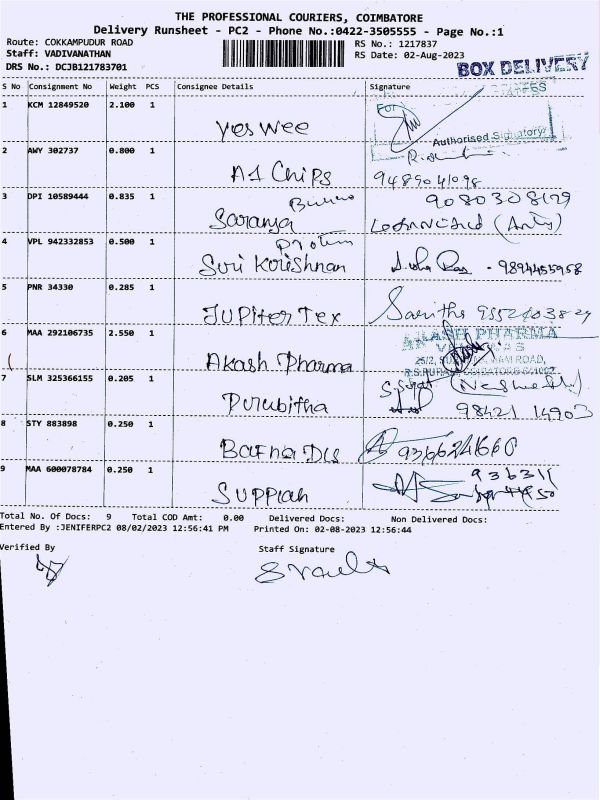 THE PROFESSIONAL COURIERS, COIMBATORE
Delivery Runsheet - PC2 - Phone No.:0422-3505555 - Page No.:1
Route: COKKAMPUDUR ROAD
RS No.: 1217837
Staff: VADIVANATHAN
RS Date: 02-Aug-2023
DRS No.: DCJB121783701
BOX DELIVERY
S No Consignment No Weight PCS Consignee Details Signature
1 KCM 12849520 2.100 1
For
Yes wee
Authorised Signatory
2 AWY 302737 0.800 1
A1 Chips
9489041098
3 DPI 10589444 0.835 1
9080308129
Saranya
4 VPL 942332853 0.500 1
Suri Krishnan
- 9894455958
5 PNR 34330 0.285 1
Jupiter Tex
Saritha
6 MAA 292106735 2.550 1
AKASH PHARMA
Akash Pharma
7 SLM 325366155 0.205 1
Purubitha
98421 14903
8 STY 883898 0.250 1
Bafna Dis
9 MAA 600078784 0.250 1
Suppiah
Total No. Of Docs: 9 Total COD Amt: 0.00 Delivered Docs: Non Delivered Docs:
Entered By :JENIFERPC2 08/02/2023 12:56:41 PM Printed On: 02-08-2023 12:56:44
Verified By Staff Signature